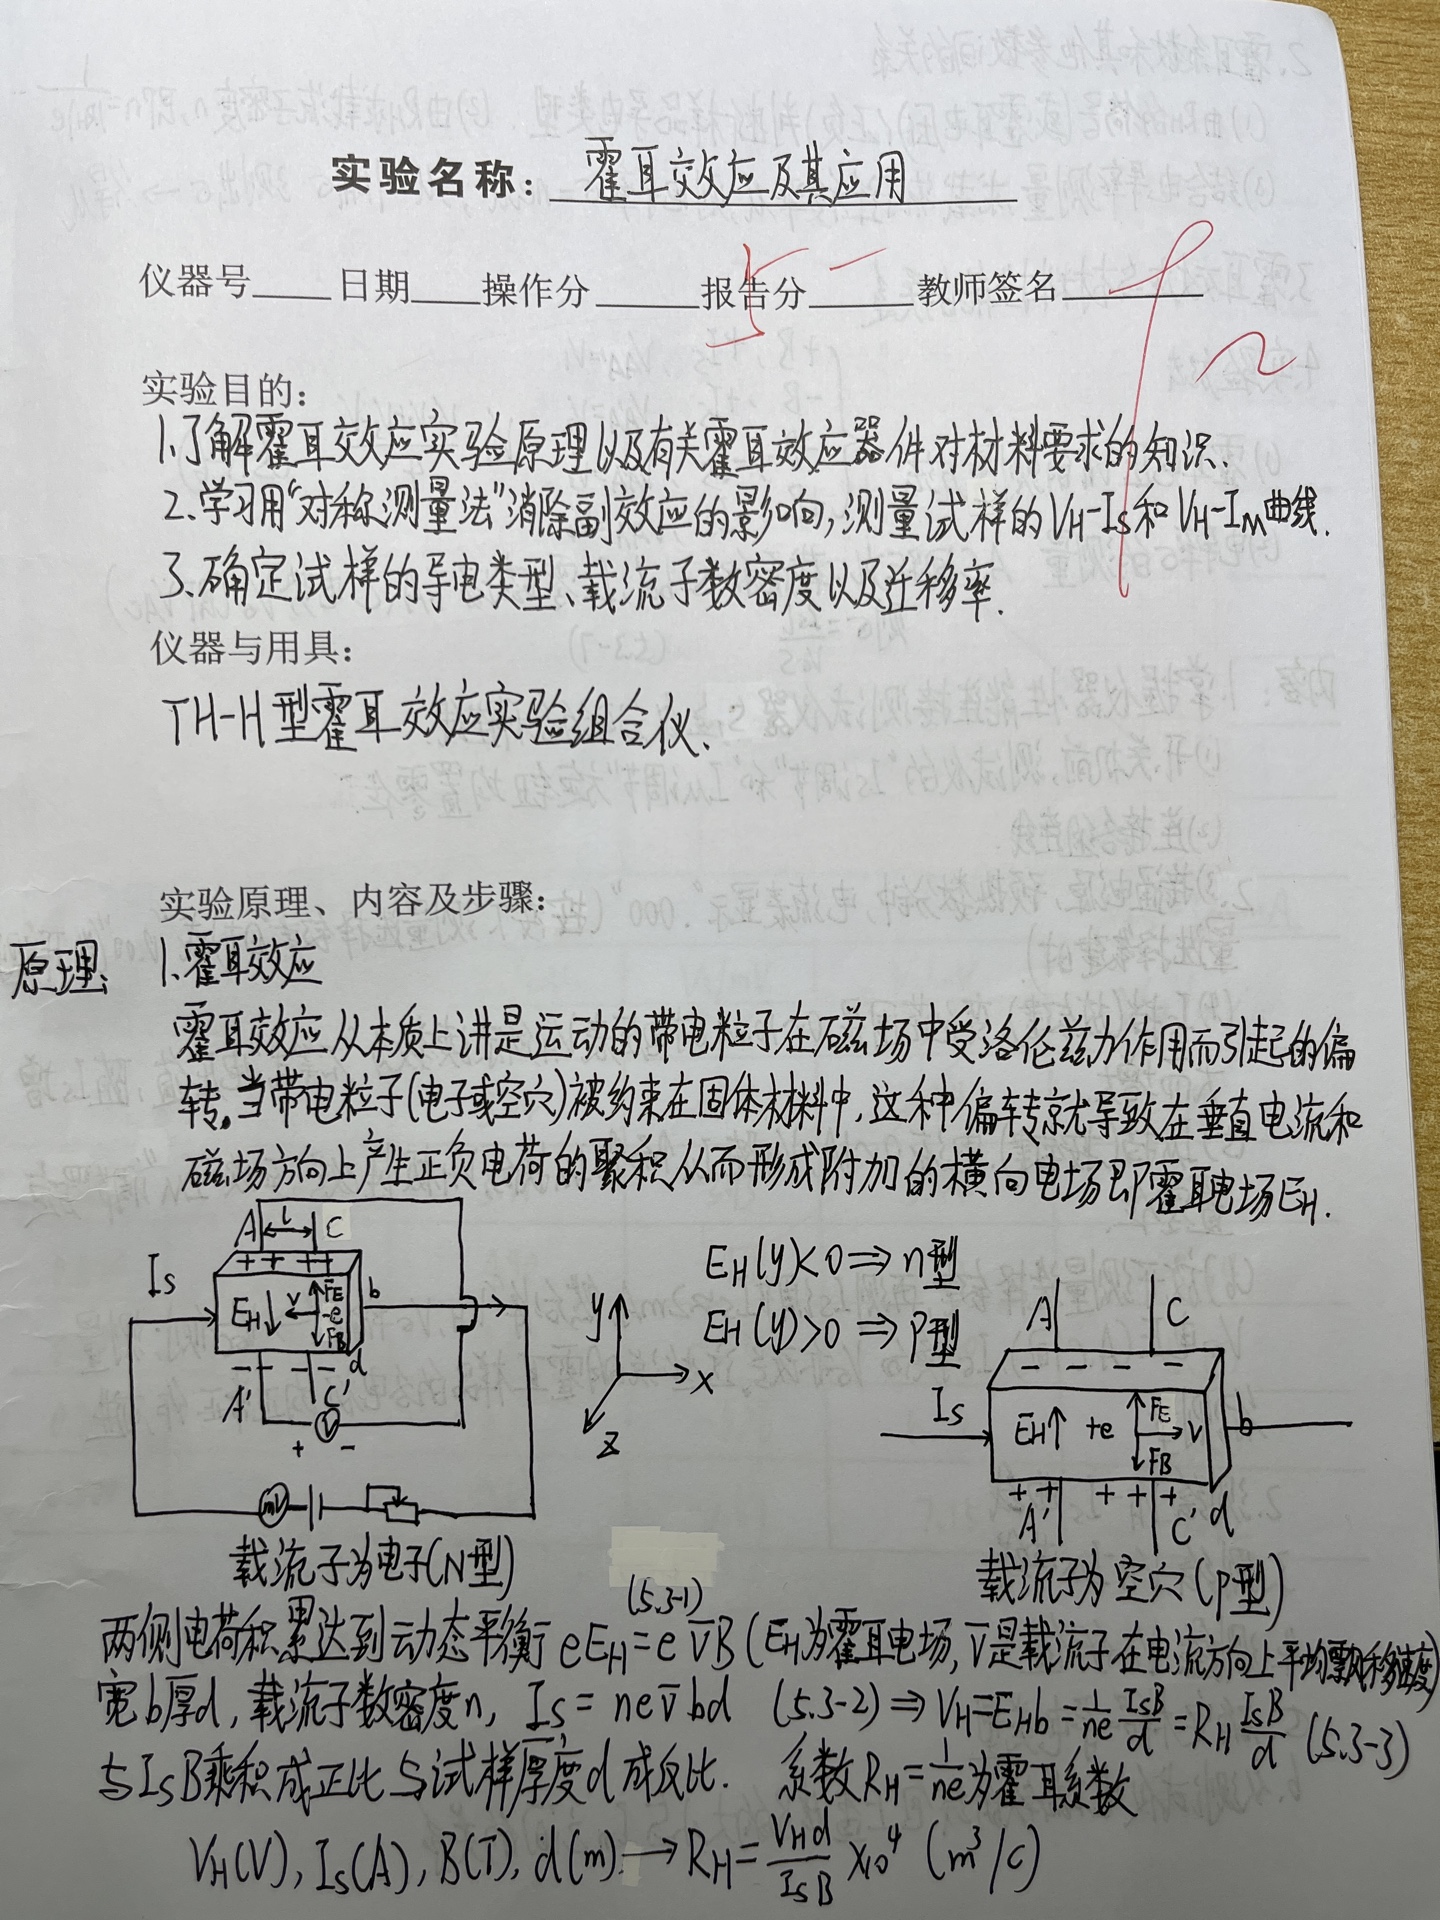 实验名称：霍耳效应及其应用
仪器号____日期____操作分____报告分____教师签名____
5-
实验目的：
1.了解霍耳效应实验原理以及有关霍耳效应器件对材料要求的知识.
2.学习用“对称测量法”消除副效应的影响,测量试样的VH-Is和VH-IM曲线.
3.确定试样的导电类型、载流子数密度以及迁移率.
仪器与用具：
TH-H型霍耳效应实验组合仪.
实验原理、内容及步骤：
原理: 1.霍耳效应
霍耳效应从本质上讲是运动的带电粒子在磁场中受洛伦兹力作用而引起的偏
转。当带电粒子(电子或空穴)被约束在固体材料中,这种偏转就导致在垂直电流和
磁场方向上产生正负电荷的聚积从而形成附加的横向电场即霍耳电场EH.
A l C
+ + ++
Is EH↓ v FE -e FB b
- - - d
A' C'
V
+ -
mV
y x z
EH(y)<0⇒n型
EH(y)>0⇒p型
A C
- - - -
Is EH↑ +e FE v FB b
+ + + + +
A' C' d
载流子为电子(N型)
载流子为空穴(p型)
(5.3-1)
两侧电荷积累达到动态平衡 eEH=ev̅B(EH为霍耳电场,v̅是载流子在电流方向上平均飘移速度)
宽b厚d,载流子数密度n, Is=nev̅bd (5.3-2)⇒VH=EHb=1/ne IsB/d=RH IsB/d (5.3-3)
与IsB乘积成正比与试样厚度d成反比. 系数RH=1/ne为霍耳系数
VH(V),Is(A),B(T),d(m)→RH=VHd/IsB ×10⁴ (m³/c)